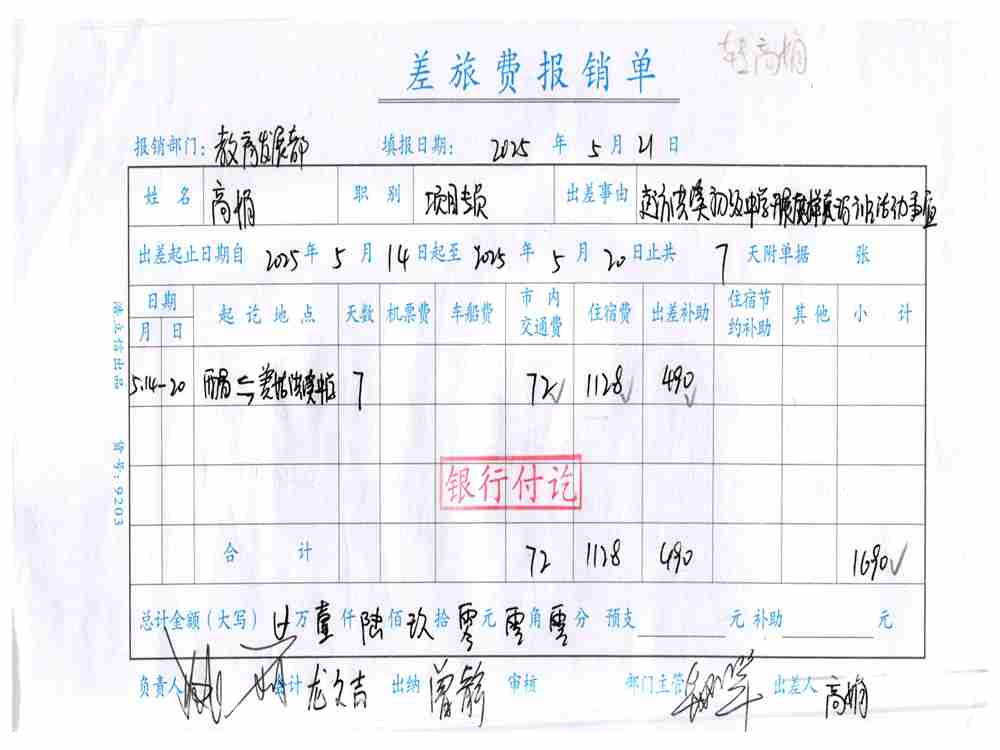 转高娟
差旅费报销单
报销部门：教育发展部 填报日期： 2025 年 5 月 21 日
姓名 高娟 职别 项目专员 出差事由
出差起止日期自 2025 年 5 月 14 日起至 2025 年 5 月 20 日止共 7 天附单据 张
日期 起讫地点 天数 机票费 车船费 市内交通费 住宿费 出差补助 住宿节约补助 其他 小计
月 日
5.14-20 7 72 1128 490
银行付讫
合计 72 1128 490 1690
总计金额（大写） 万 壹 仟 陆 佰 玖 拾 零 元 零 角 零 分 预支 元 补助 元
负责人 会计 龙文吉 出纳 曾静 审核 部门主管 出差人 高娟
货号：9203